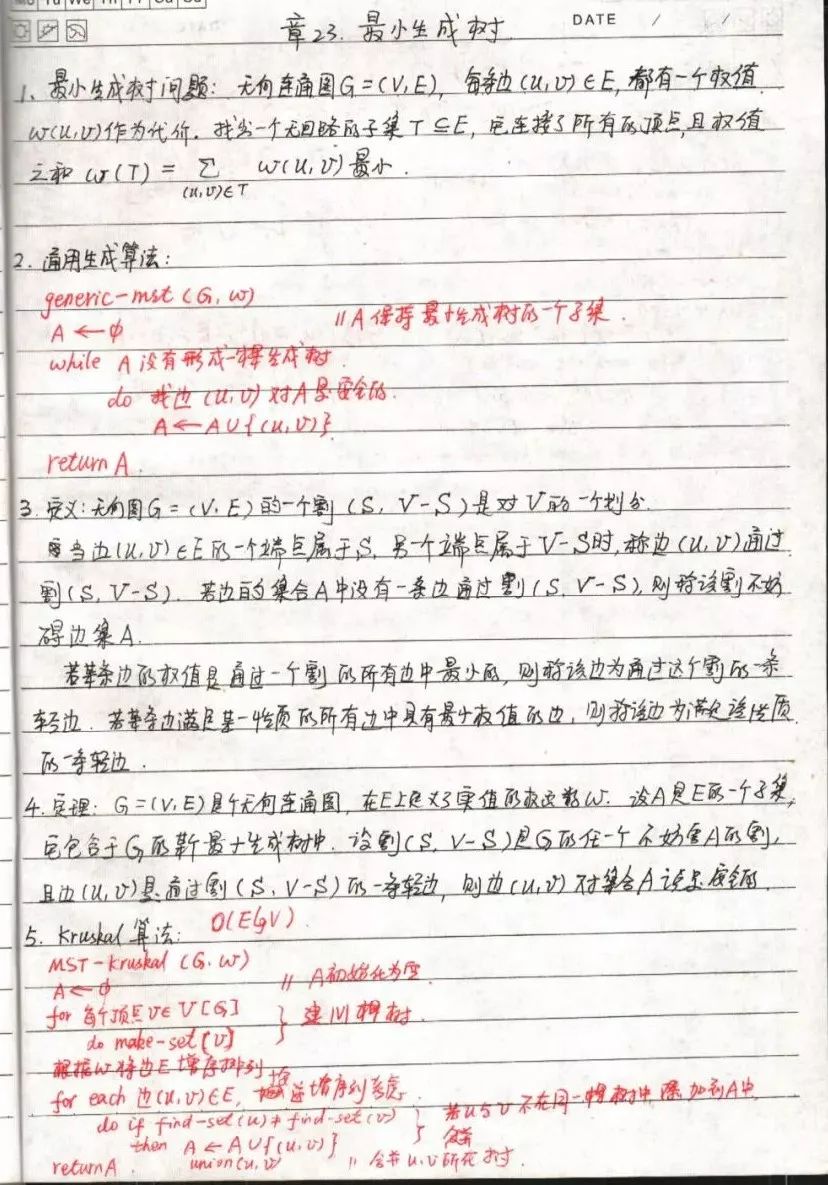 Mo Tu We Th Fr Sa Su
章23. 最小生成树
DATE / /
1、最小生成树问题: 无向连通图G=(V,E), 每条边(u,v)∈E, 都有一个权值
w(u,v)作为代价. 找出一个无回路的子集T⊆E, 它连接了所有的顶点,且权值
之和 w(T) = Σ w(u,v)最小.
(u,v)∈T
2. 通用生成算法:
generic-mst (G, w)
A ← φ // A保持最小生成树的一个子集.
while A没有形成一棵生成树
do 找边(u,v)对A是安全的.
A←A∪{(u,v)}
return A.
3. 定义: 无向图G=(V,E)的一个割(S, V-S)是对V的一个划分.
当边(u,v)∈E的一个端点属于S, 另一个端点属于V-S时,称边(u,v)通过
割(S, V-S). 若边的集合A中没有一条边通过割(S, V-S),则称该割不妨
碍边集A.
若某条边的权值是通过一个割的所有边中最小的, 则称该边为通过这个割的一条
轻边. 若某条边满足某一性质的所有边中具有最小权值的边, 则称该边为满足该性质
的一条轻边.
4. 定理: G=(V,E)是个无向连通图, 在E上定义了实值的权函数w. 设A是E的一个子集,
它包含于G的某个最小生成树中. 设割(S, V-S)是G的任一个不妨害A的割,
且边(u,v)是通过割(S, V-S)的一条轻边, 则边(u,v)对集合A说是安全的.
5. Kruskal 算法: O(ElgV)
MST-Kruskal (G, w)
A←φ // A初始化为空.
for 每个顶点v∈V[G] } 建|V|棵树.
do make-set(v)
根据w将边E增序排列
for each 边(u,v)∈E, 按递增序列考虑.
do if find-set(u)≠find-set(v) } 若u与v不在同一棵树中, 添加到A中
then A←A∪{(u,v)}
union(u,v) // 合并u,v所在树.
return A